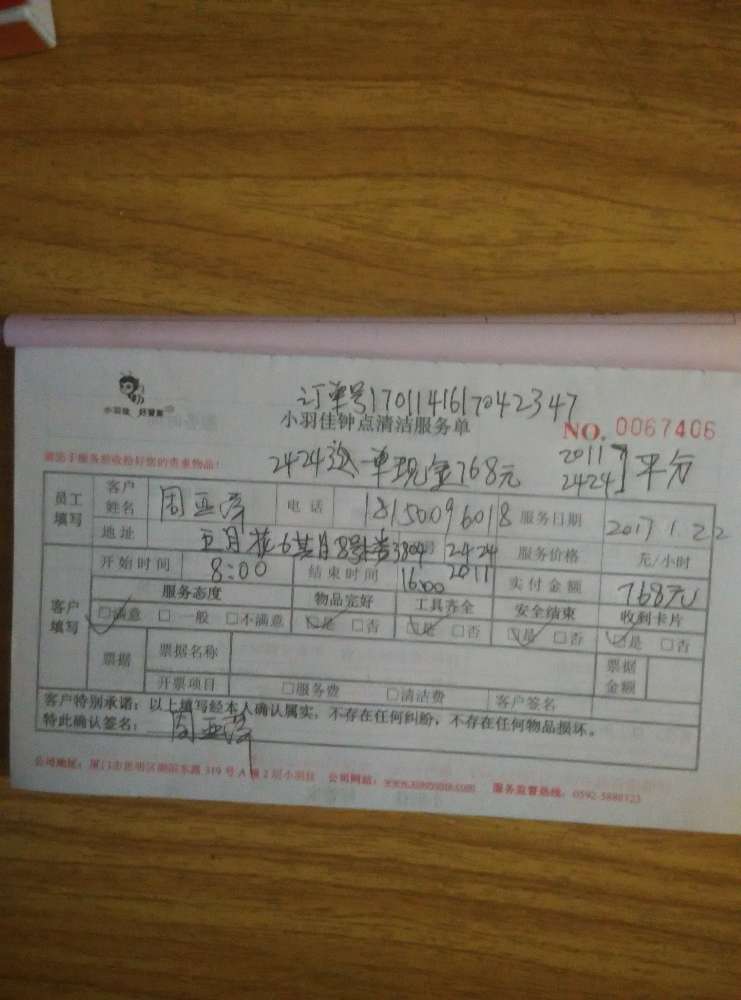 订单号1701141617042347
小羽佳 好管家
小羽佳钟点清洁服务单
NO. 0067406
请您于服务前收拾好您的贵重物品!
2424送一单现金768元 2011 2424 平分
员工填写 客户姓名 周亚萍 电话 18150096018 服务日期 2017.1.22
地址 五月花6 8号 380 2424 2011 服务价格 元/小时
开始时间 8:00 结束时间 16:00 实付金额 768元
客户填写 服务态度 物品完好 工具齐全 安全结束 收到卡片
□满意 □一般 □不满意 □是 □否 □是 □否 □是 □否 □是 □否
票据 票据名称 票据金额
开票项目 □服务费 □清洁费 客户签名
客户特别承诺:以上填写经本人确认属实,不存在任何纠纷,不存在任何物品损坏。
特此确认签名: 周亚萍
公司地址:厦门市思明区湖滨东路319号A 2层小羽佳 公司网站: 服务监督热线:0592-5888123